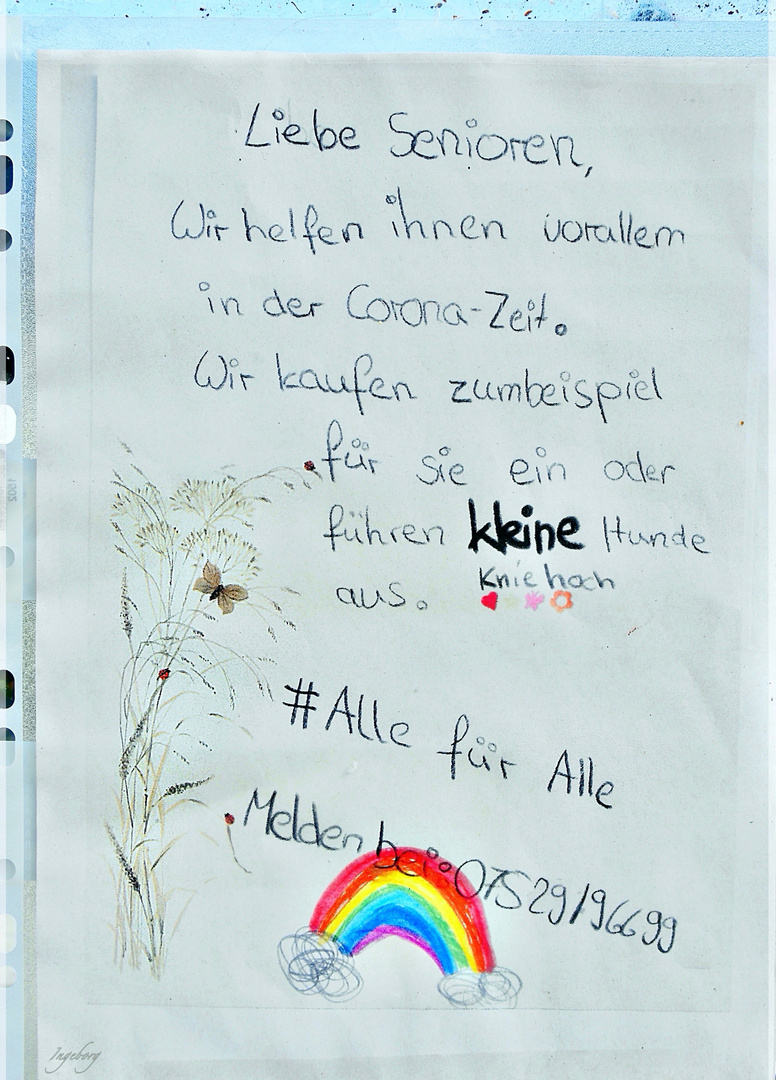 Liebe Senioren,
Wir helfen ihnen vorallem
in der Corona-Zeit.
Wir kaufen zumbeispiel
für sie ein oder
führen kleine Hunde
Knie hoch
aus.
#Alle für Alle
Melden bei: 07529/96699
Ingeborg